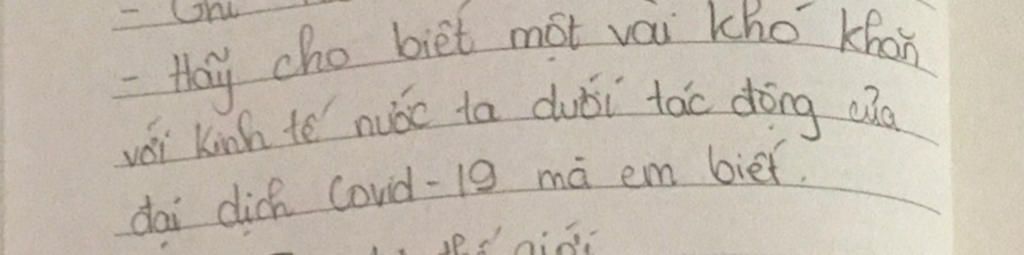 - Ghi
- Hãy cho biết một vài khó khăn
với kinh tế nước ta dưới tác động của
đại dịch Covid-19 mà em biết.
thế giới